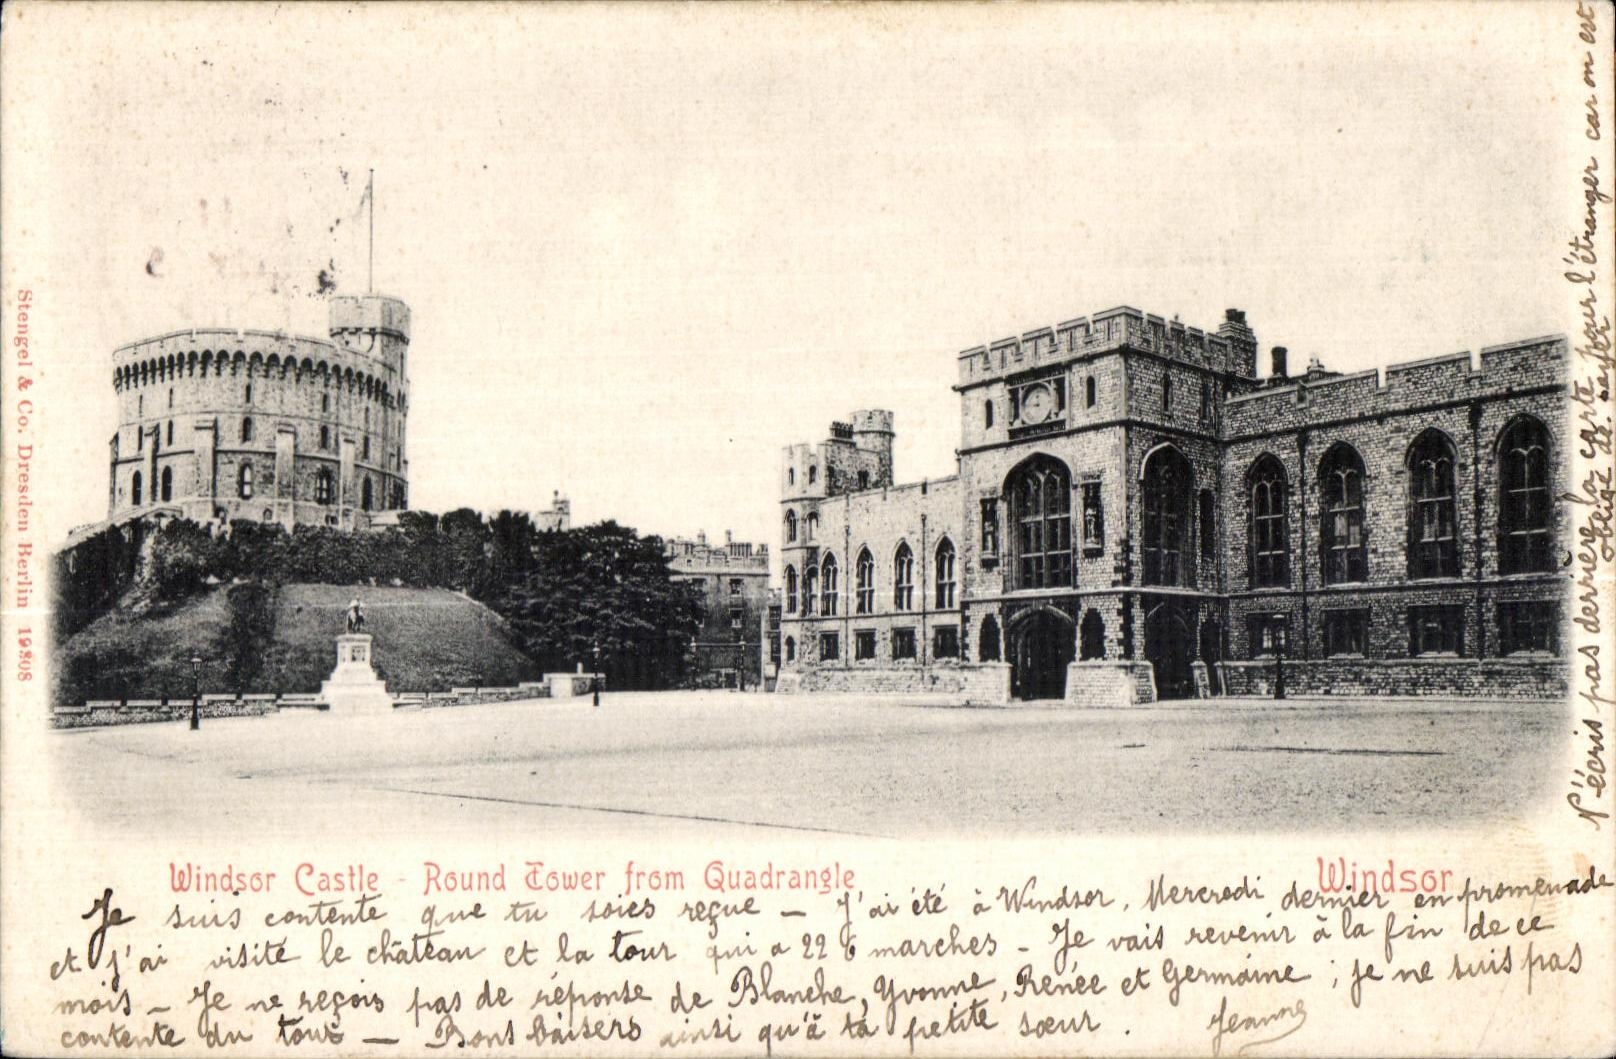 Stengel & Co. Dresden Berlin 19808
Windsor Castle - Round Tower from Quadrangle
Windsor
Je suis contente que tu soies reçue — J'ai été à Windsor, Mercredi dernier en promenade
et j'ai visité le château et la tour qui a 226 marches - Je vais revenir à la fin de ce
mois — Je ne reçois pas de réponse de Blanche, Yvonne, Renée et Germaine ; je ne suis pas
contente du tout — Bons baisers ainsi qu'à ta petite sœur . Jeanne
N'écris pas derrière la carte pour l'étranger car on est
obligé de payer